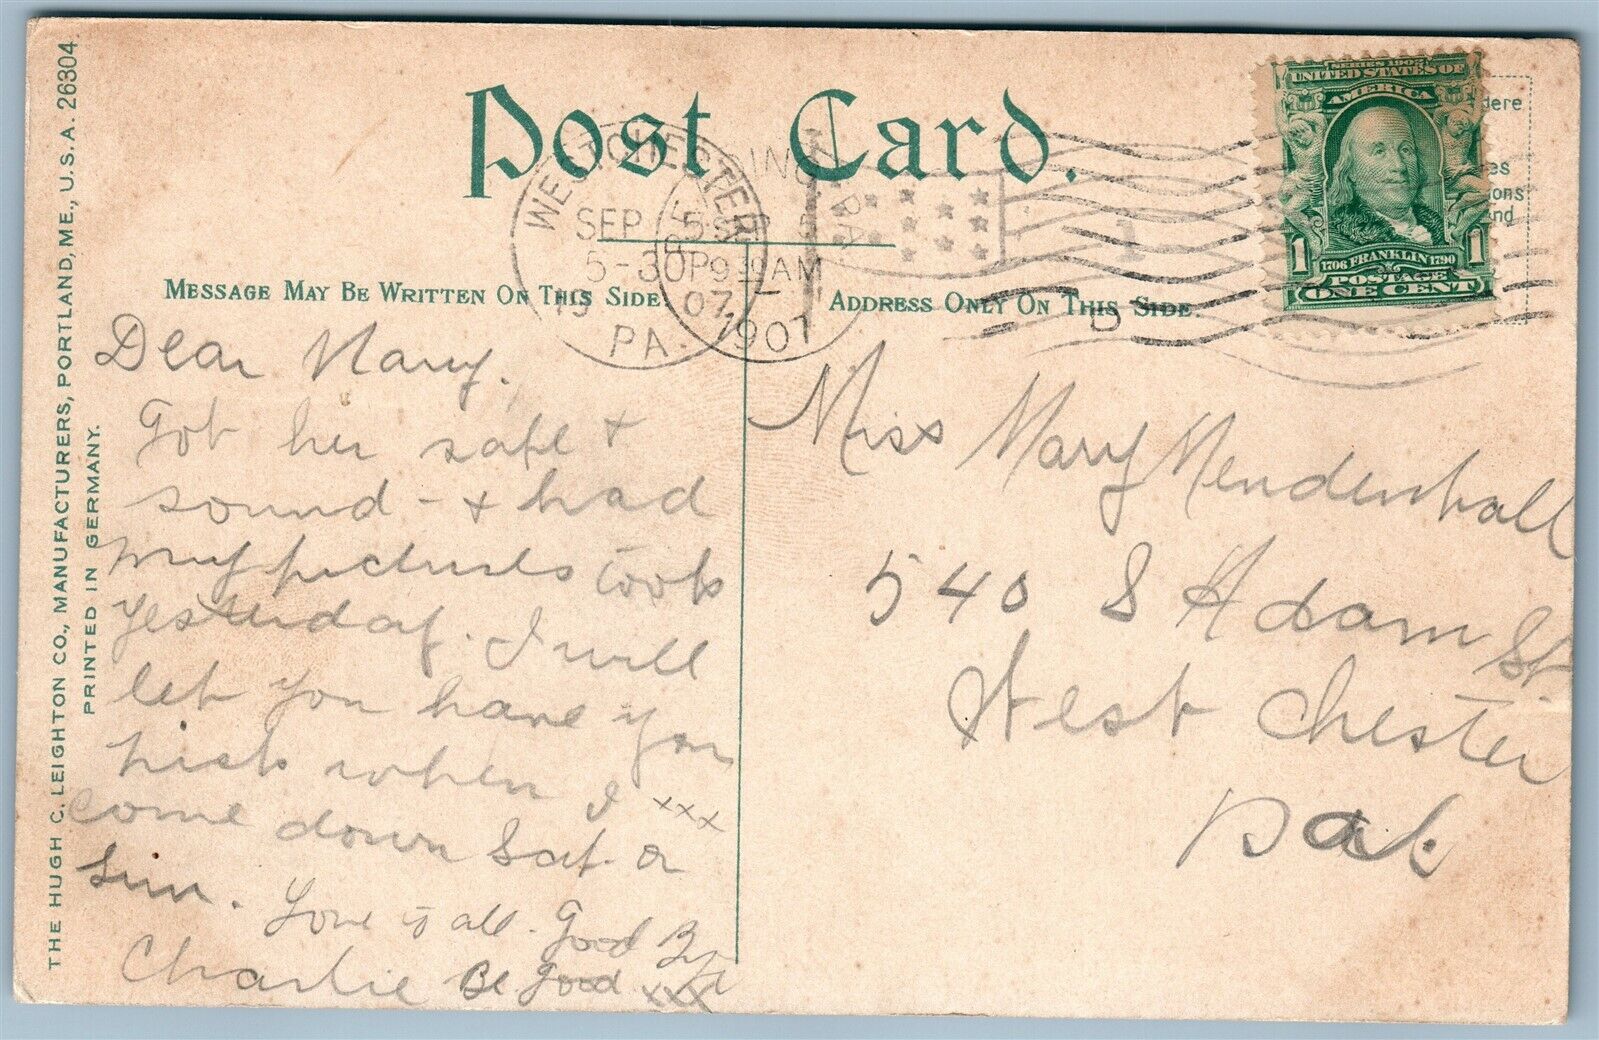 THE HUGH C. LEIGHTON CO., MANUFACTURERS, PORTLAND, ME., U.S.A. 26304.
PRINTED IN GERMANY.
Post Card.
MESSAGE MAY BE WRITTEN ON THIS SIDE.
ADDRESS ONLY ON THIS SIDE.
WEST CHESTER
SEP 5
5-30P
19 07
PA.
PA
9 30 AM
1907
1
D
SERIES 1902
UNITED STATES OF
AMERICA
1706 FRANKLIN 1790
1 POSTAGE 1
ONE CENT
Dear Mary.
Got her safe +
sound - + had
my pictures took
yesterday. I will
let you have you
pick when I xxx
come down Sat. or
Sun.
Love to all. Good By
Charlie Be Good xxx
Miss Mary Mendenhall
540 S Adam St.
West Chester
Pa.